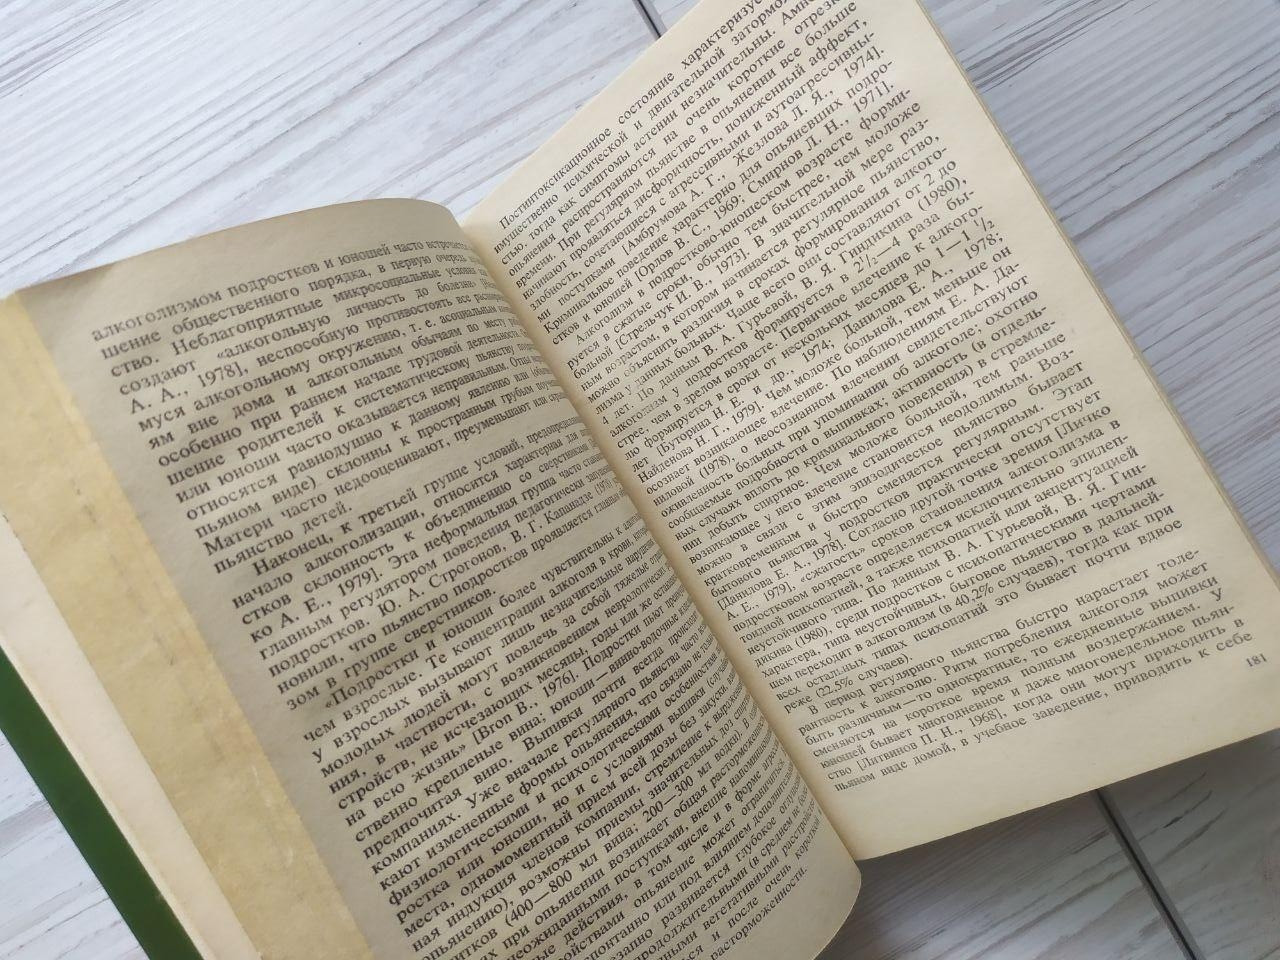 алкоголизмом подростков и юношей часто встречается
шение общественного порядка, в первую очередь
ство. Неблагоприятные микросоциальные условия
создают „алкогольную личность до болезни»
А. А., 1978], неспособную противостоять все
муся алкогольному окружению, т. е. асоциальным
ям вне дома и алкогольным обычаям по месту
особенно при раннем начале трудовой деятельности.
шение родителей к систематическому пьянству
или юноши часто оказывается неправильным. Отцы
относятся равнодушно к данному явлению или
пьяном виде) склонны к пространным грубым
Матери часто недооценивают, преуменьшают или
пьянство детей.
Наконец, к третьей группе условий,
начало алкоголизации, относится характерная для
стков склонность к объединению со сверстниками
ко А. Е., 1979]. Эта неформальная группа часто
главным регулятором поведения педагогически
подростков. Ю. А. Строгонов, В. Г. Капанадзе
новили, что пьянство подростков проявляется главным
зом в группе сверстников.
«Подростки и юноши более чувствительны к
чем взрослые. Те концентрации алкоголя в крови,
у взрослых вызывают лишь незначительные
молодых людей могут повлечь за собой тяжелые
ния, в частности, с возникновением неврологических
стройств, не исчезающих месяцы, годы или же
на всю жизнь» [Bron B., 1976]. Подростки пьют
ственно крепленые вина; юноши — винно-водочные
предпочитая вино. Выпивки почти всегда
компаниях. Уже вначале регулярного пьянства часто
кают измененные формы опьянения, что связано не только
физиологическими и психологическими особенностями
ростка или юноши, но и с условиями выпивки
места, одномоментный прием всей дозы без закуски,
ная индукция членов компании, стремление к
опьянению), возможны приемы значительных доз
питков (400—800 мл вина; 200—300 мл водки). В
ях при опьянении возникает общая
неожиданными поступками, внешне
ные действия, в том числе и в форме
ойствами опьянение может
спонтанно или под влиянием дополнительных
езапно развивается глубокое
продолжительными (в среднем не более
нными вегетативными
ться и после очень
расторможенности.
Постинтоксикационное состояние характеризуется
имущественно психической и двигательной
стью, тогда как симптомы астении незначительны.
опьянения распространяются на очень короткие отрезки
времени. При регулярном пьянстве в опьянении все больше
начинают проявляться дисфоричность, пониженный аффект,
злобность, сочетающиеся с агрессивными и аутоагрессивны-
ми поступками [Амбрумова А. Г., Жезлова Л. Я., 1974].
Криминальное поведение характерно для опьяневших подро-
стков и юношей [Орлов В. С., 1969; Смирнов Л. Н., 1971].
Алкоголизм в подростково-юношеском возрасте форми-
руется в сжатые сроки, обычно тем быстрее, чем моложе
больной [Стрельчук И. В., 1973]. В значительной мере раз-
ным возрастом, в котором начинается регулярное пьянство,
можно объяснить различия в сроках формирования алкого-
лизма у данных больных. Чаще всего они составляют от 2 до
4 лет. По данным В. А. Гурьевой, В. Я. Гиндикина (1980),
алкоголизм у подростков формируется в 2½—4 раза бы-
стрее, чем в зрелом возрасте. Первичное влечение к алкого-
лю формируется в сроки от нескольких месяцев до 1—1½
лет [Буторина Н. Е. и др., 1974; Данилова Е. А., 1978;
Найденова Н. Г., 1979]. Чем моложе больной, тем меньше он
осознает возникающее влечение. По наблюдениям Е. А. Да-
ниловой (1978), о неосознанном влечении свидетельствуют
оживленность больных при упоминании об алкоголе; охотно
сообщаемые подробности о выпивках; активность (в отдель-
ных случаях вплоть до криминального поведения) в стремле-
нии добыть спиртное. Чем моложе больной, тем раньше
возникающее у него влечение становится неодолимым. Воз-
можно в связи с этим эпизодическое пьянство бывает
кратковременным и быстро сменяется регулярным. Этап
бытового пьянства у подростков практически отсутствует
[Данилова Е. А., 1978]. Согласно другой точке зрения [Личко
А. Е., 1979], «сжатость» сроков становления алкоголизма в
подростковом возрасте определяется исключительно эпилеп-
тоидной психопатией, а также психопатией или акцентуацией
неустойчивого типа. По данным В. А. Гурьевой, В. Я. Гин-
дикина (1980), среди подростков с психопатическими чертами
характера, типа неустойчивых, бытовое пьянство в дальней-
шем переходит в алкоголизм (в 40,2% случаев), тогда как при
всех остальных типах психопатий это бывает почти вдвое
реже (22,5% случаев).
В период регулярного пьянства быстро нарастает толе-
рантность к алкоголю. Ритм потребления алкоголя может
быть различным — то однократные, то ежедневные выпивки
сменяются на короткое время полным воздержанием. У
юношей бывает многодневное и даже многонедельное пьян-
ство [Литвинов П. Н., 1968], когда они могут приходить в
пьяном виде домой, в учебное заведение, приводить к себе
181